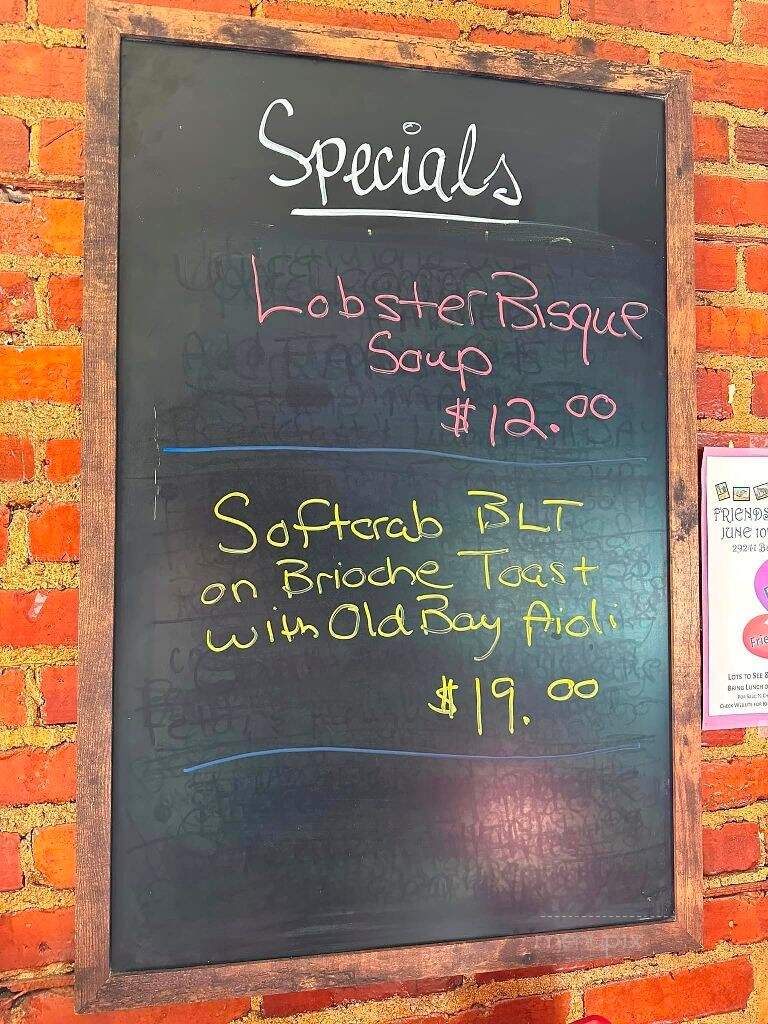 Specials
Lobster Bisque
Soup
$12.00
Softcrab BLT
on Brioche Toast
with Old Bay Aioli
$19.00
FRIENDS
JUNE 10
LOTS TO SEE &
BRING LUNCH
menupix